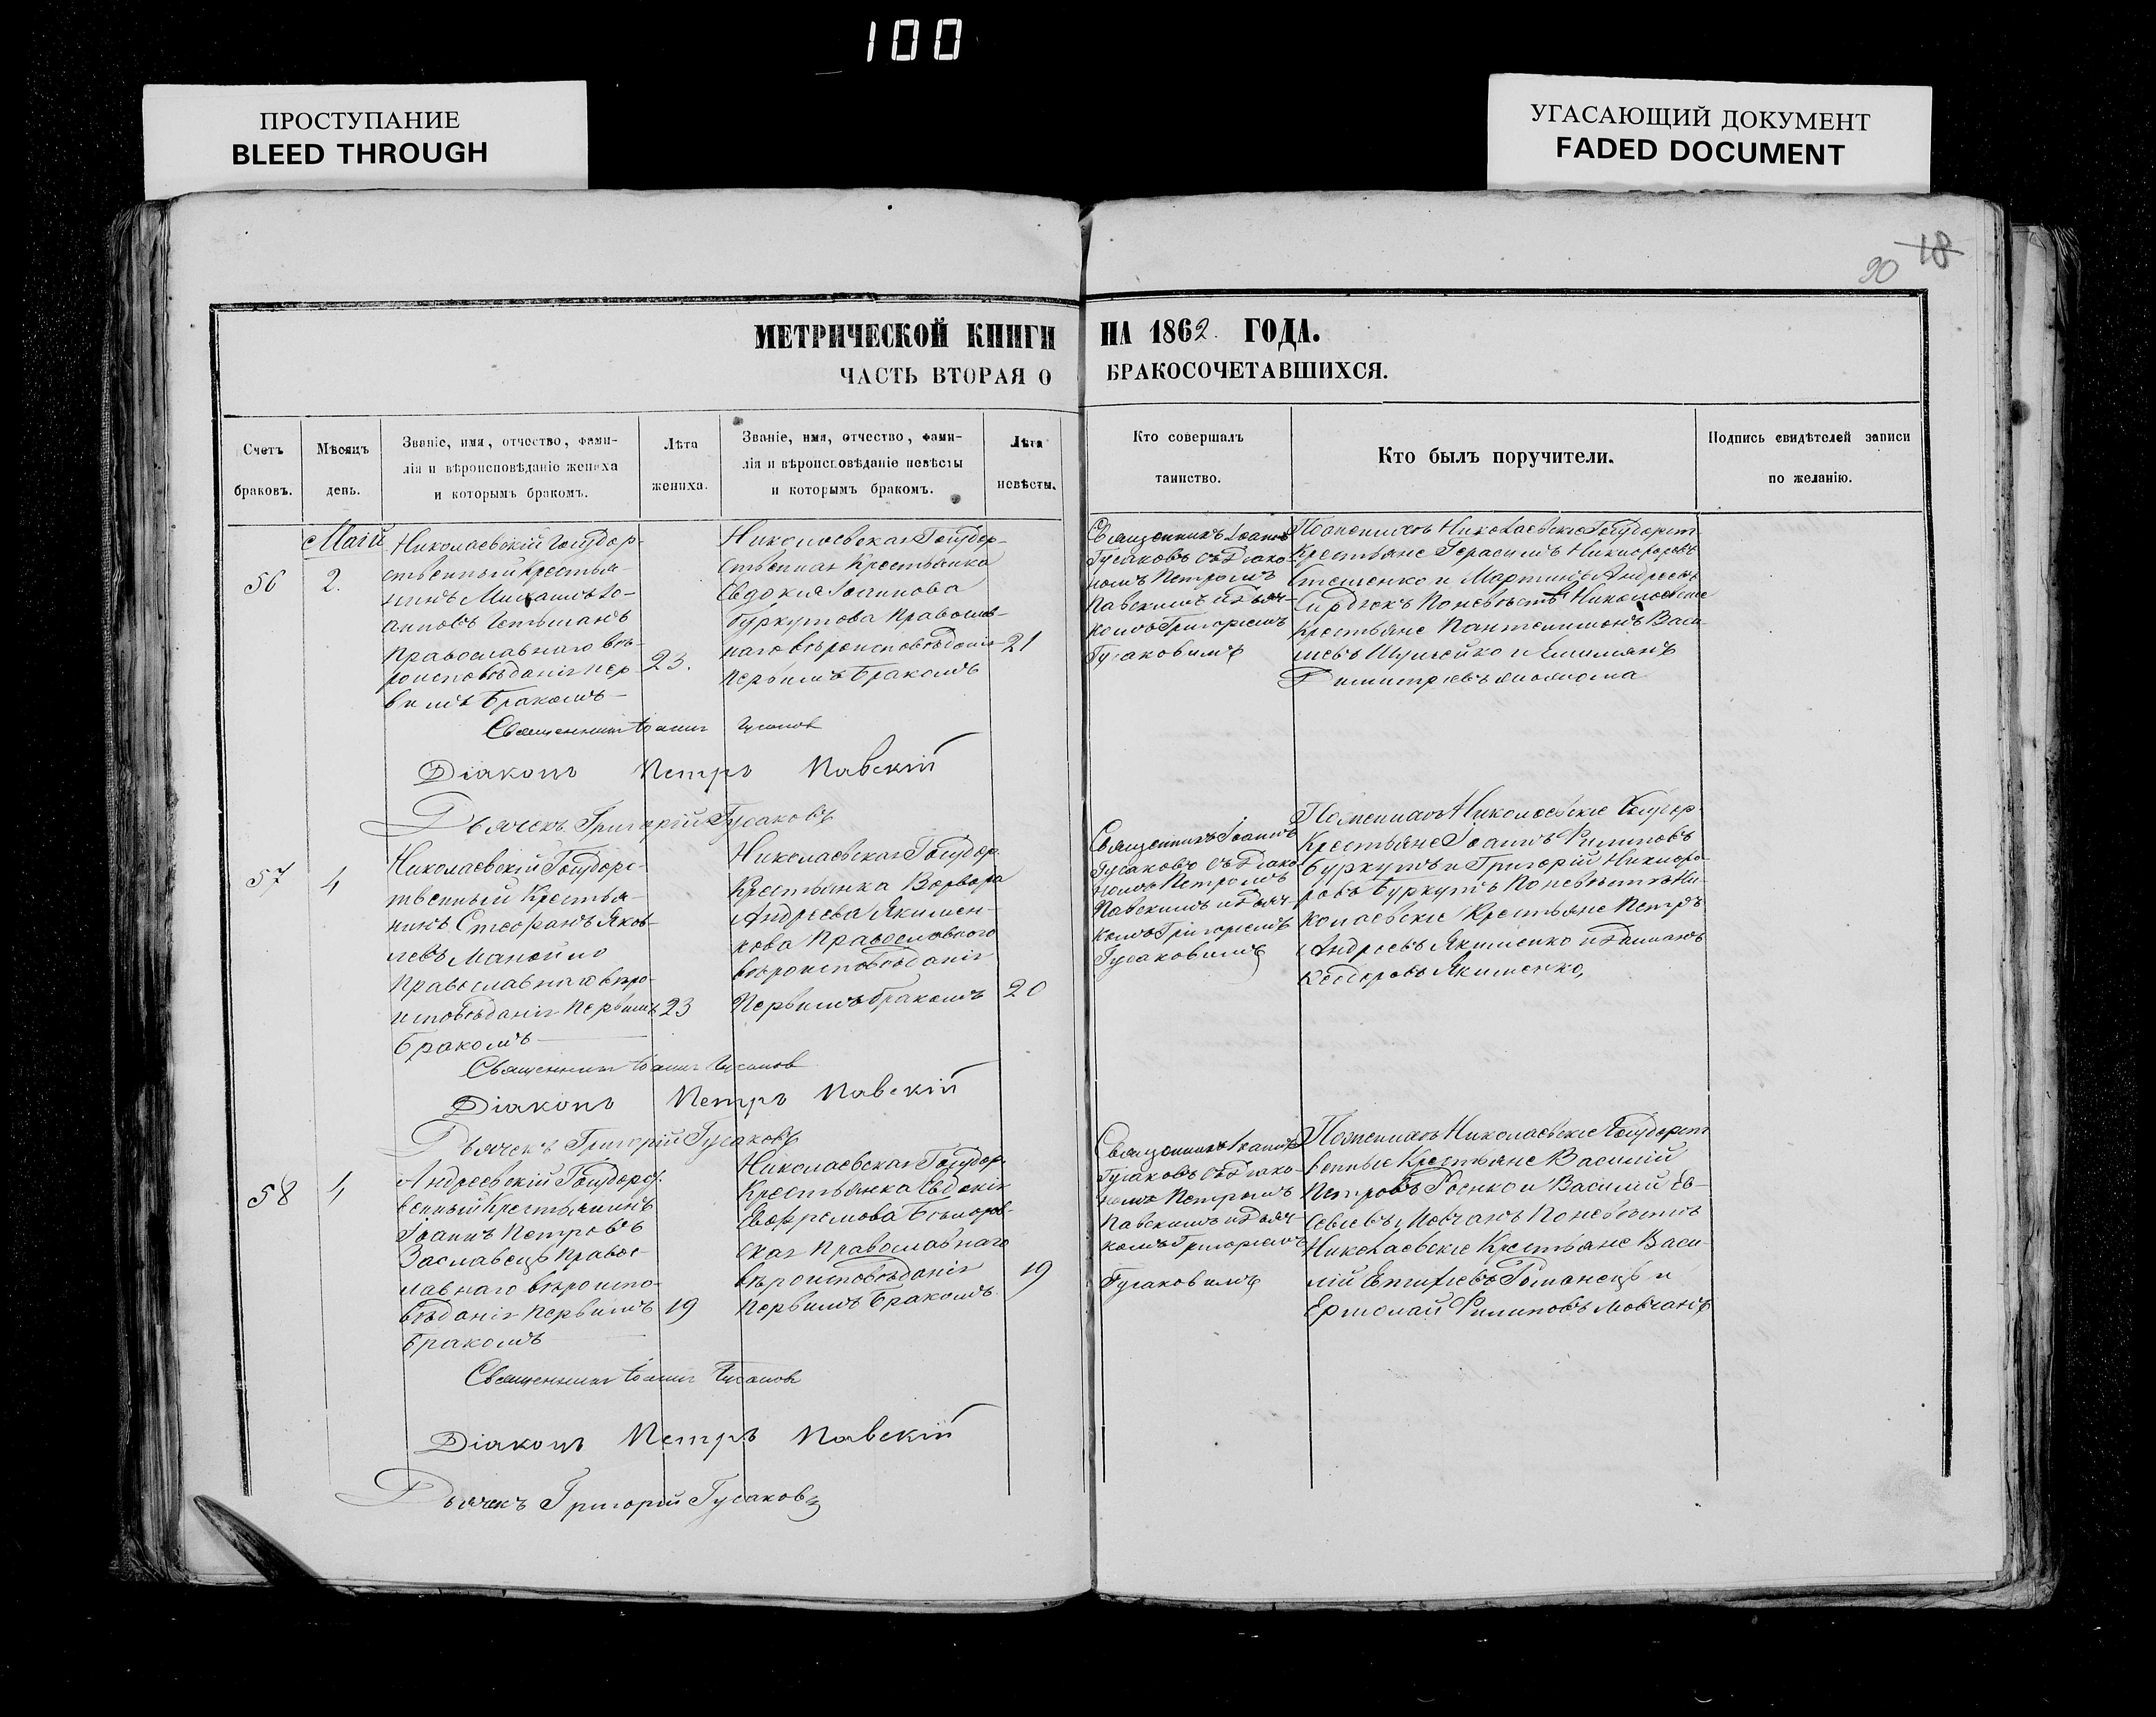 100
ПРОСТУПАНИЕ
BLEED THROUGH
УГАСАЮЩИЙ ДОКУМЕНТ
FADED DOCUMENT
90 18
МЕТРИЧЕСКОЙ КНИГИ НА 1862. ГОДА.
ЧАСТЬ ВТОРАЯ О БРАКОСОЧЕТАВШИХСЯ.
Счетъ
браковъ.
Мѣсяцъ
день.
Званіе, имя, отчество, фами-
лія и вѣроисповѣданіе жениха
и которымъ бракомъ.
Лѣта
жениха.
Званіе, имя, отчество, фами-
лія и вѣроисповѣданіе невѣсты
и которымъ бракомъ.
Лѣта
невѣсты.
Кто совершалъ
таинство.
Кто былъ поручители.
Подпись свидѣтелей записи
по желанію.
56
Май
2.
Николаевскій Государ-
ственный крестья-
нинъ Михаилъ Іо-
анновъ
Православнаго вѣ-
роисповѣданія пер-
вимъ бракомъ
23.
Николаевская Государ-
ственная Крестьянка
Евдокія Іоаннова
Буркутова Православ-
наго вѣроисповѣданія
первимъ бракомъ
21
Священникъ Іоаннъ
Гусаковъ съ Діако-
номъ Петромъ
Павскимъ и Дьяч-
комъ Григоріемъ
Гусаковимъ
По женихѣ Николаевскіе Государст
Крестьяне Герасимъ Никифоровъ
Стешенко и Мартинъ Андреевъ
Сердюкъ По невѣстѣ Николаевскіе
Крестьяне Пантелимонъ Васи-
льевъ и Емилианъ
Димитріевъ
Священникъ Іоаннъ Гусаковъ
Діаконъ Петръ Павскій
Дьячекъ Григорій Гусаковъ
57
4
Николаевскій Государс-
твенный Крестья-
нинъ Стефанъ Яков-
левъ Манойло
Православнаго вѣро-
исповѣданія Первимъ
бракомъ
23
Николаевская Государ.
Крестьянка Варвара
Андреева Якимен-
кова Православного
вѣроисповѣданія
Первимъ бракомъ
20
Священникъ Іоаннъ
Гусаковъ съ Діако-
номъ Петромъ
Павскимъ и Дьяч-
комъ Григоріемъ
Гусаковимъ
По женихѣ Николаевскіе Государ-
Крестьяне Іоаннъ Филиповъ
Буркутъ и Григорій Никифо-
ровъ Буркутъ По невѣстѣ Ни-
колаевскіе Крестьяне Петръ
Андреевъ Якименко и Даміанъ
Феодоровъ Якименко,
Священникъ Іоаннъ Гусаковъ
Діаконъ Петръ Павскій
Дьячекъ Григорій Гусаковъ
58
4
Андреевскій Государст.
венный Крестьянинъ
Іоаннъ Петровъ
Заславецъ Правос-
лавнаго вѣроиспо-
вѣданія Первимъ
бракомъ
19
Николаевская Государ.
Крестьянка Евдокія
Евфремова Бѣлоров-
ская Православнаго
вѣроисповѣданія
Первимъ бракомъ
19
Священникъ Іоаннъ
Гусаковъ съ Діако-
номъ Петромъ
Павскимъ и Дьяч-
комъ Григоріемъ
Гусаковимъ
По женихѣ Николаевскіе Государст
венные Крестьяне Василій
Петровъ Роенко и Василій Ев-
севіевъ Мовчанъ По невѣстѣ
Николаевскіе Крестьяне Васи-
лій Романецъ и
Ермолай Филиповъ Мовчанъ
Священникъ Іоаннъ Гусаковъ
Діаконъ Петръ Павскій
Дьячекъ Григорій Гусаковъ